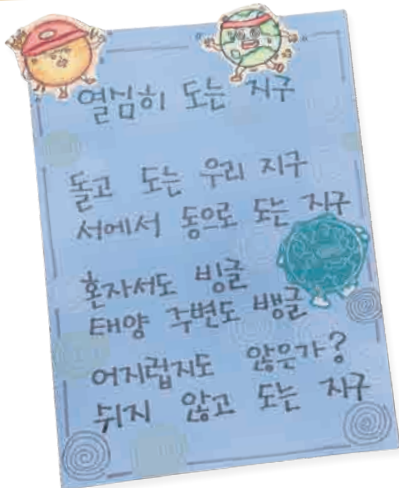 열심히 도는 지구
돌고 도는 우리 지구
서에서 동으로 도는 지구
혼자서도 빙글
태양 주변도 뱅글
어지럽지도 않은가?
쉬지 않고 도는 지구